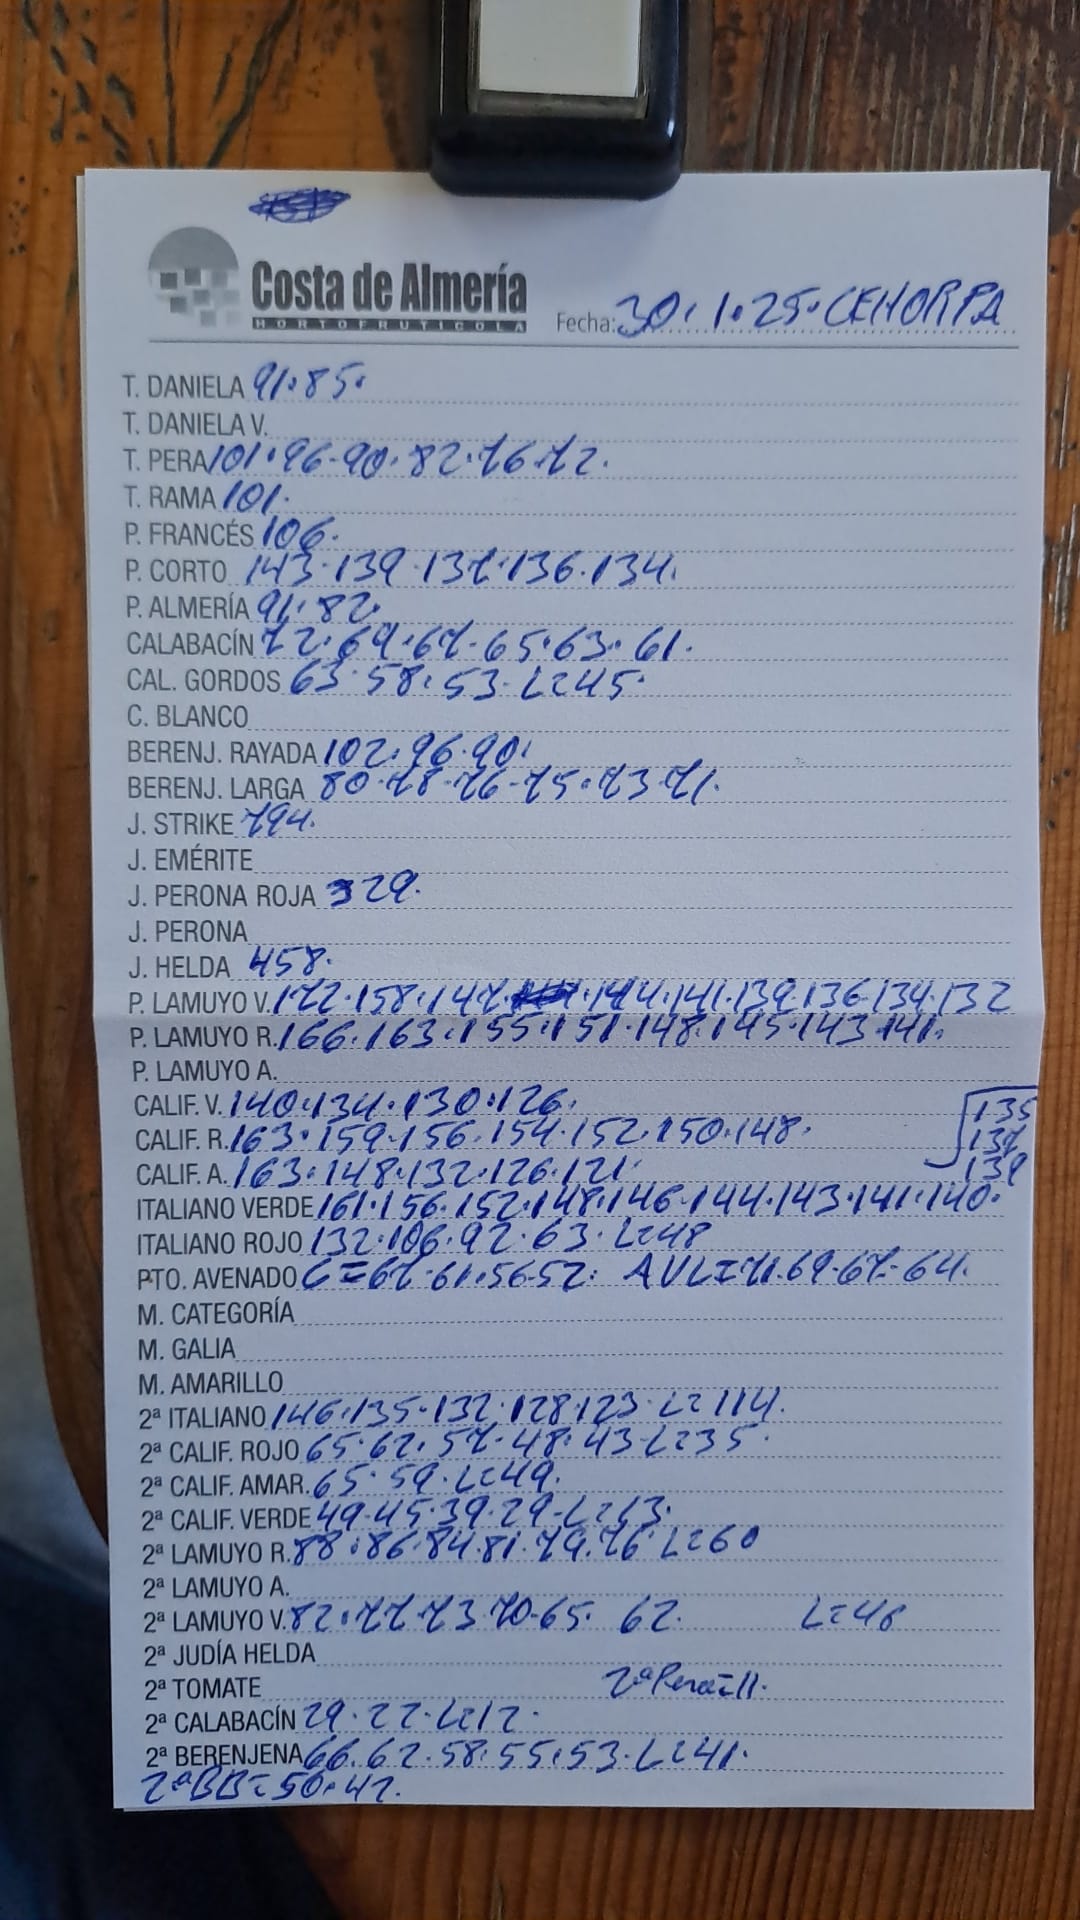 Costa de Almería
HORTOFRUTICOLA
Fecha: 30.1.25. CEHORPA
T. DANIELA 91.85.
T. DANIELA V.
T. PERA 101.96.90.82.76.72.
T. RAMA 101.
P. FRANCÉS 106.
P. CORTO 143.139.137.136.134.
P. ALMERÍA 91.82.
CALABACÍN 72.69.67.65.63.61.
CAL. GORDOS 63.58.53. L=45.
C. BLANCO
BERENJ. RAYADA 102.96.90.
BERENJ. LARGA 80.78.76.75.73.71.
J. STRIKE 794.
J. EMÉRITE
J. PERONA ROJA 329.
J. PERONA
J. HELDA 458.
P. LAMUYO V. 172.158.147. 144.141.139.136.134.132
P. LAMUYO R. 166.163.155.151.148.145.143.141.
P. LAMUYO A.
CALIF. V. 140.134.130.126. 135
CALIF. R. 163.159.156.154.152.150.148. 137
CALIF. A. 163.148.132.126.121. 139
ITALIANO VERDE 161.156.152.148.146.144.143.141.140.
ITALIANO ROJO 132.106.92.63. L=48
PTO. AVENADO C=67.61.56.52. AVL=71.69.67.64.
M. CATEGORÍA
M. GALIA
M. AMARILLO
2ª ITALIANO 146.135.132.128.123. L=114.
2ª CALIF. ROJO 65.62.57.48.43 L=35.
2ª CALIF. AMAR. 65.59. L=49.
2ª CALIF. VERDE 49.45.39.29. L=13.
2ª LAMUYO R. 88.86.84.81.79.76. L=60
2ª LAMUYO A.
2ª LAMUYO V. 82.77.73.70.65. 62. L=48
2ª JUDÍA HELDA
2ª TOMATE 2ª Pera=11.
2ª CALABACÍN 29.22. L=12.
2ª BERENJENA 66.62.58.55.53. L=41.
2ª BB=50.42.